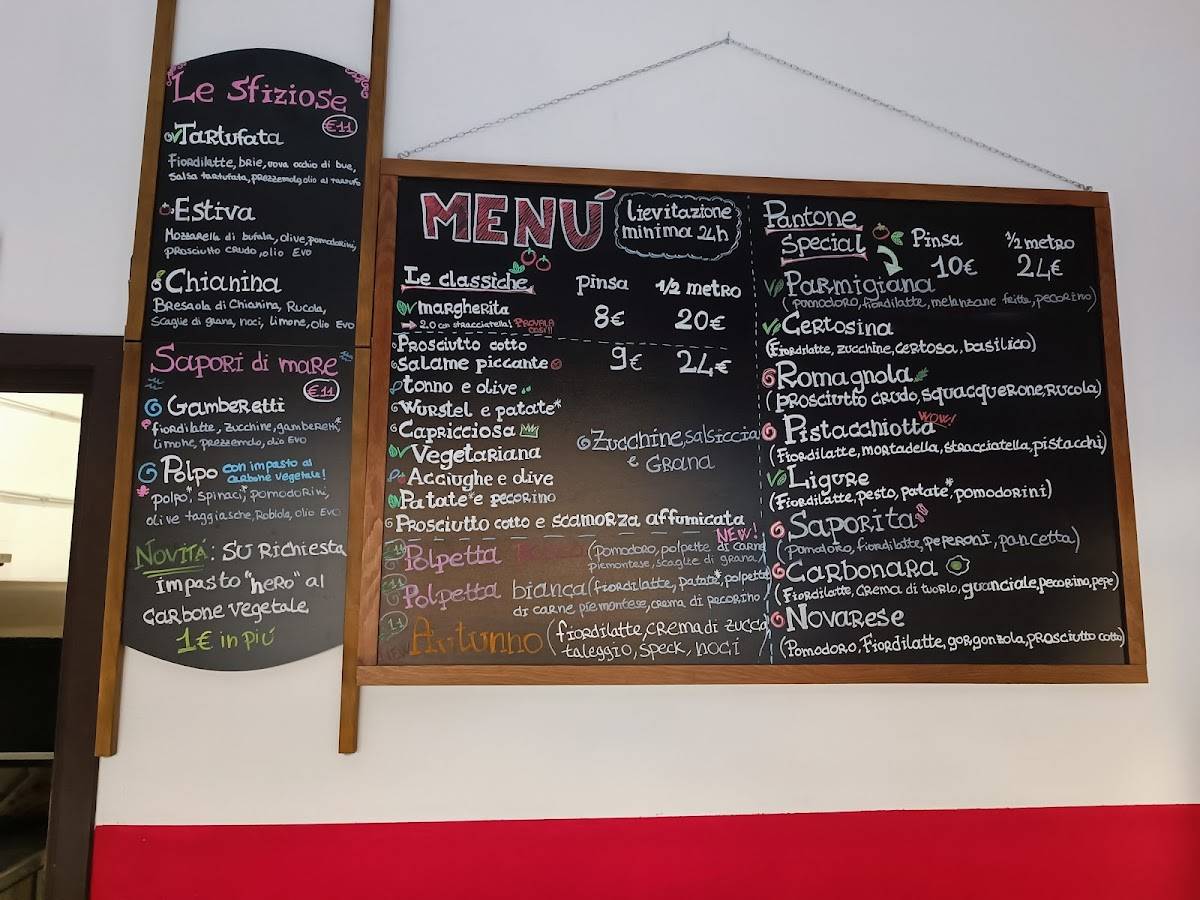 Le Sfiziose
€11
Tartufata
Fiordilatte, brie, uova occhio di bue,
salsa tartufata, prezzemolo, olio al tartufo
Estiva
Mozzarella di bufala, olive, pomodorini,
prosciutto crudo, olio Evo
Chianina
Bresaola di Chianina, Rucola,
Scaglie di grana, noci, limone, olio Evo
Sapori di mare
€11
Gamberetti
fiordilatte, zucchine, gamberetti*
limone, prezzemolo, olio Evo
Polpo con impasto al
carbone vegetale!
polpo*, spinaci*, pomodorini,
olive taggiasche, Robiola, olio Evo
Novità: su richiesta
impasto "nero" al
carbone vegetale
1€ in più
MENÚ
lievitazione
minima 24h
Le classiche
pinsa 1/2 metro
margherita
2.0 con stracciatella! PROVALA
COSÌ!!
8€ 20€
Prosciutto cotto
Salame piccante
9€ 24€
tonno e olive
Wurstel e patate*
Capricciosa
Vegetariana
Acciughe e olive
Patate* e pecorino
Zucchine, salsiccia
e Grana
Prosciutto cotto e scamorza affumicata
NEW!
11 Polpetta (pomodoro, polpette di carne
piemontese, scaglie di grana)
11 Polpetta bianca (fiordilatte, patate*, polpette
di carne piemontese, crema di pecorino)
11 Autunno (fiordilatte, crema di zucca
NEW taleggio, speck, noci
Pantone
Special
Pinsa 1/2 metro
10€ 24€
Parmigiana
(pomodoro, fiordilatte, melanzane fritte, pecorino)
Certosina
(Fiordilatte, zucchine, certosa, basilico)
Romagnola
(prosciutto crudo, squacquerone, rucola)
Pistacchiotta WOW!
(Fiordilatte, mortadella, stracciatella, pistacchi)
Ligure
(Fiordilatte, pesto, patate*, pomodorini)
Saporita
(pomodoro, fiordilatte, peperoni, pancetta)
Carbonara
(Fiordilatte, crema di tuorlo, guanciale, pecorino, pepe)
Novarese
(Pomodoro, Fiordilatte, gorgonzola, prosciutto cotto)